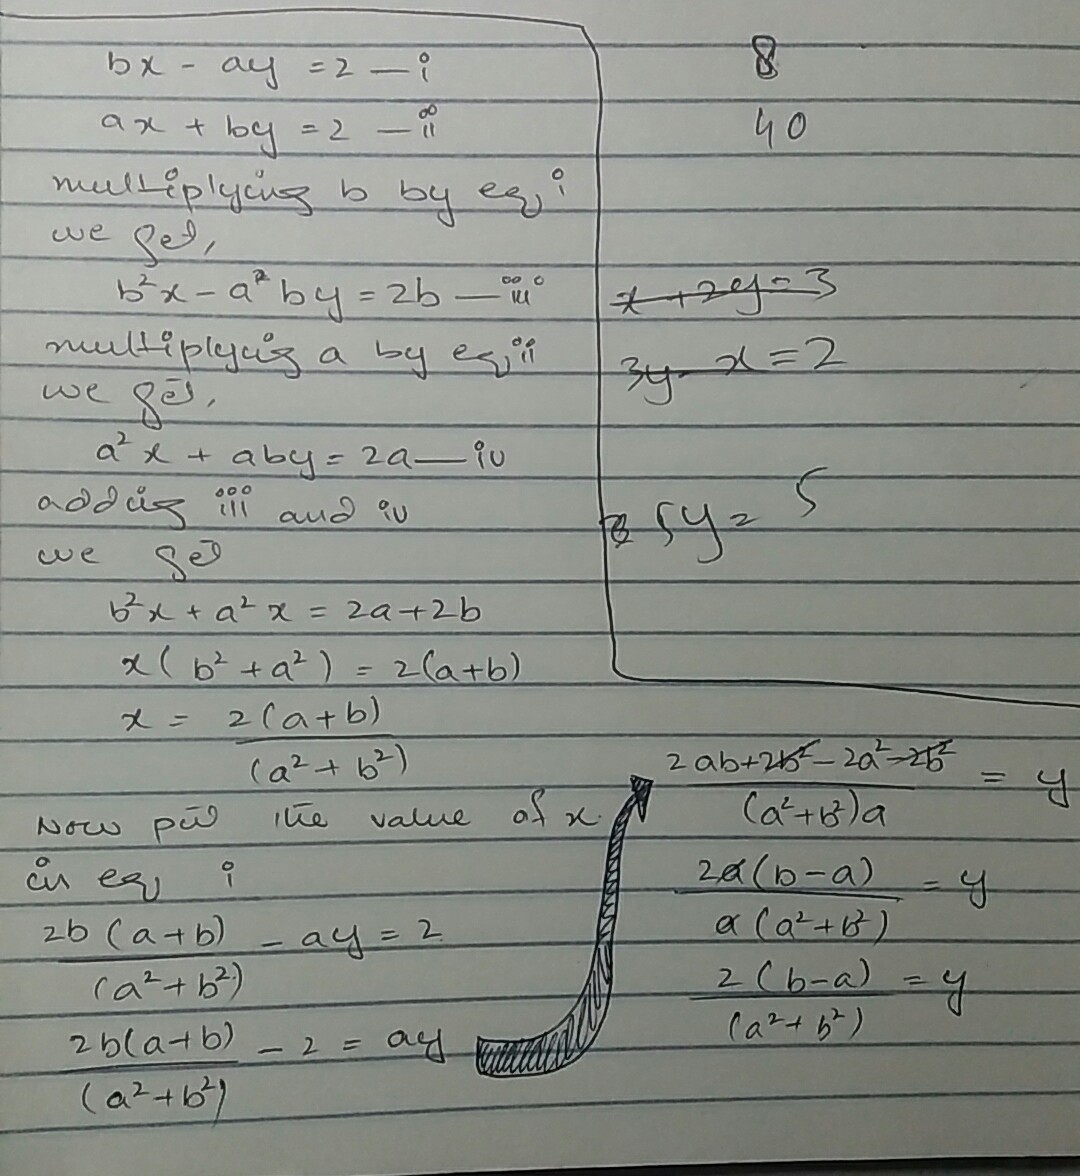 bx - ay = 2 — i
ax + by = 2 — ii
multiplying b by eq i
we get,
b²x - a²by = 2b — iii
multiplying a by eq ii
we get,
a²x + aby = 2a — iv
adding iii and iv
we get
b²x + a²x = 2a + 2b
x(b² + a²) = 2(a+b)
x = 2(a+b)
(a² + b²)
Now put the value of x
in eq i
2b(a+b) - ay = 2
(a²+b²)
2b(a+b) - 2 = ay
(a²+b²)
8
40
x + 2y = 3
3y - x = 2
5y = 5
2ab + 2b² - 2a² - 2b² = y
(a²+b²)a
2a(b-a) = y
a(a²+b²)
2(b-a) = y
(a²+b²)